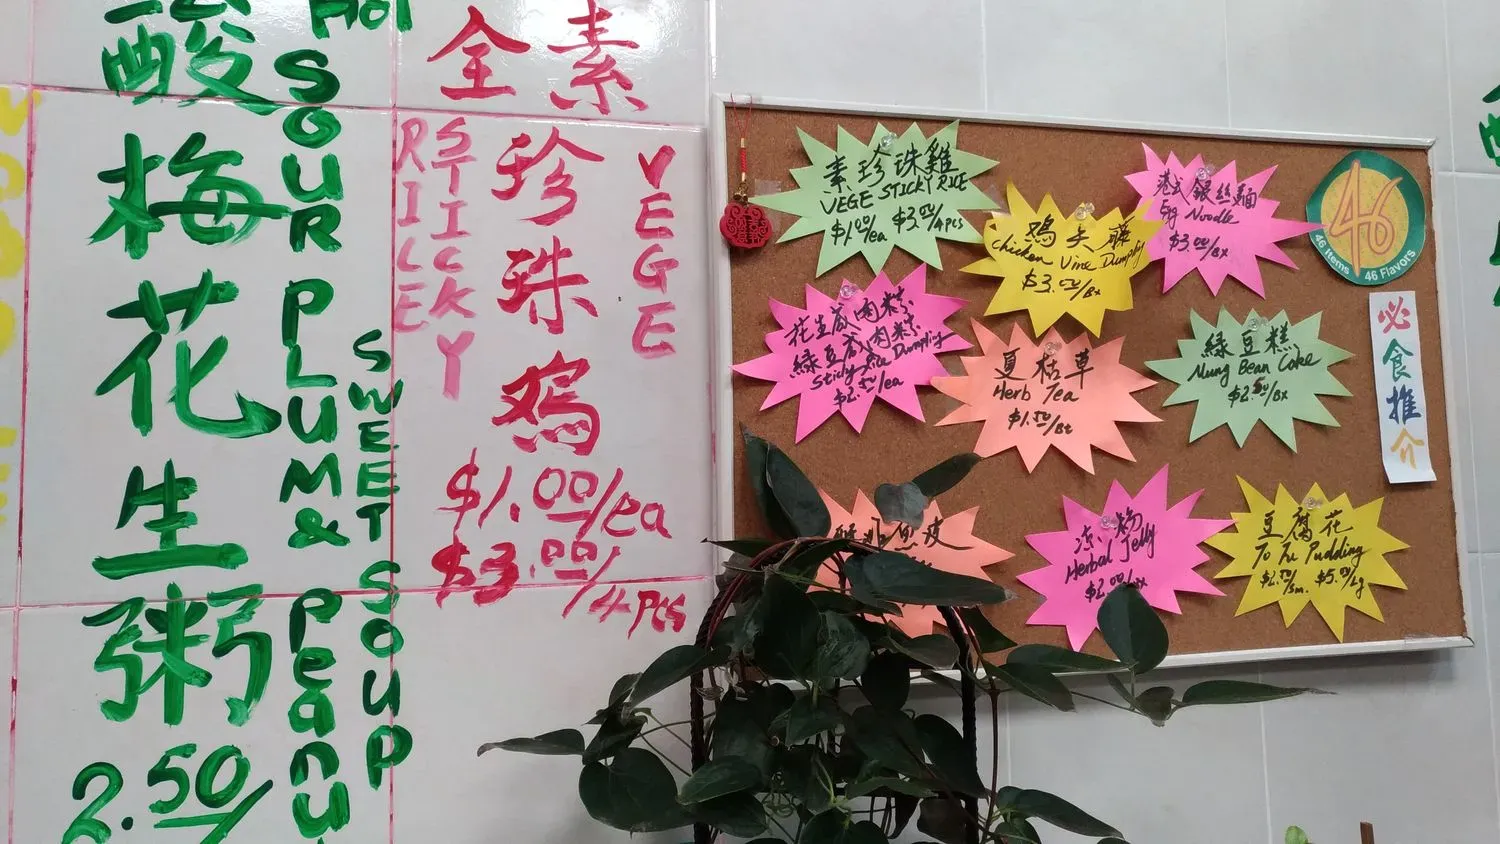 酸梅花生粥
Hot
SOUR PLUM & Peanut
SWEET SOUP
2.50/
全素
珍珠鸡
VEGE
STICKY
RICE
$1.00/ea
$3.00/4pcs
素珍珠雞
VEGE STICKY RICE
$1.00/ea $3.00/4pcs
鸡夭藤
Chicken Vine Dumpling
$3.00/Bx
港式銀丝麵
Egg Noodle
$3.00/Bx
46
46 Items 46 Flavors
花生咸肉粽
綠豆咸肉粽
Sticky Rice Dumpling
$2.50/ea
夏枯草
Herb Tea
$1.50/Bt
綠豆糕
Mung Bean Cake
$2.50/Bx
必食推介
魚皮
凉粉
Herbal Jelly
$2.00/Bx
豆腐花
To Fu Pudding
$2.50/sm. $5.00/Lg